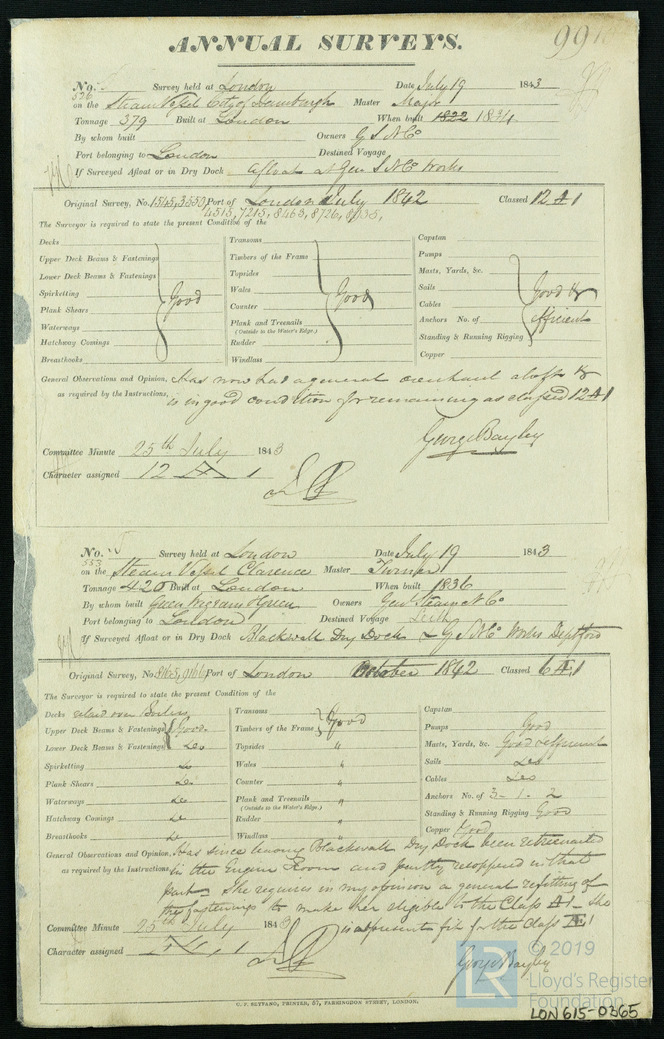 ANNUAL SURVEYS.
No. Survey held at London Date July 19 1843
536
on the Steam Vessel City of Edinburgh Master Major
Tonnage 379 Built at London When built 1822 1834
By whom built Owners G S N Co
Port belonging to London Destined Voyage
If Surveyed Afloat or in Dry Dock Afloat at Gen S N C Works
Original Survey, No. 1545, 3550, Port of London July 1842 Classed 12 A 1
4515, 7215, 8463, 8726,
The Surveyor is required to state the present Condition of the
Decks Transoms Capstan
Upper Deck Beams & Fastenings Timbers of the Frame Pumps
Lower Deck Beams & Fastenings Topsides Masts, Yards, &c.
Spirketting Wales Sails
Good Good Good &
Plank Shears Counter Cables
Waterways Plank and Treenails Anchors No. of efficient
(Outside in the Water's Edge.)
Hatchway Comings Rudder Standing & Running Rigging
Breasthooks Windlass Copper
General Observations and Opinion, Has now had a general overhaul afloat &
as required by the Instructions, is in good condition for remaining as classed 12 A 1
George Bayley
Committee Minute 25th July 1843
Character assigned 12 A 1
No. Survey held at London Date July 19 1843
533
on the Steam Vessel Clarence Master Turner
Tonnage 420 Built at London When built 1836
By whom built Green Wigram & Green Owners Genl Steam N Co
Port belonging to London Destined Voyage Leith
If Surveyed Afloat or in Dry Dock Blackwall Dry Dock & G S N C Works Deptford
Original Survey, No. 8165, 9166 Port of London October 1842 Classed 6 Æ 1
The Surveyor is required to state the present Condition of the
Decks relaid over Boilers Transoms Capstan
Upper Deck Beams & Fastenings Good Timbers of the Frame Good Pumps Good
Lower Deck Beams & Fastenings Do Topsides " Masts, Yards, &c. Good & efficient
Spirketting Do Wales " Sails Do
Plank Shears Do Counter " Cables Do
Waterways Do Plank and Treenails " Anchors No. of 3 - 1 - 2
(Outside in the Water's Edge.)
Hatchway Comings Do Rudder " Standing & Running Rigging Good
Breasthooks Do Windlass " Copper Good
General Observations and Opinion, Has since leaving Blackwall Dry Dock been retreenailed
as required by the Instructions, in the Engine Room and partly recoppered in that
part - She requires in my opinion a general refitting of
the fastenings to make her eligible to the Class A 1 - She
is at present fit for the Class Æ 1
Committee Minute 25th July 1843
Character assigned Æ 1
George Bayley
C. F. SEYFANG, PRINTER, 57, FARRINGDON STREET, LONDON.
LR
© 2019
Lloyd's Register
Foundation
LON615-0365